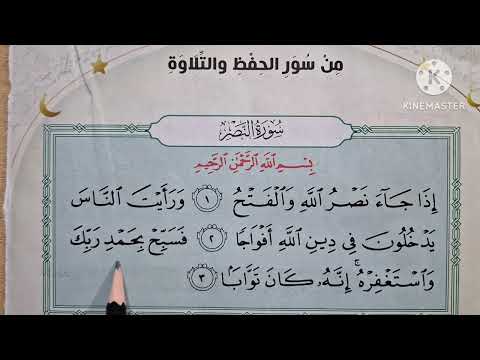 مِنْ سُوَرِ الحِفْظِ والتِّلاوَةِ
KINEMASTER
سُورَةُ النَّصْرِ
بِسْمِ اللَّهِ الرَّحْمَٰنِ الرَّحِيمِ
إِذَا جَآءَ نَصْرُ اللَّهِ وَالْفَتْحُ ١ وَرَأَيْتَ النَّاسَ
يَدْخُلُونَ فِي دِينِ اللَّهِ أَفْوَاجًا ٢ فَسَبِّحْ بِحَمْدِ رَبِّكَ
وَاسْتَغْفِرْهُ ۚ إِنَّهُۥ كَانَ تَوَّابًۢا ٣